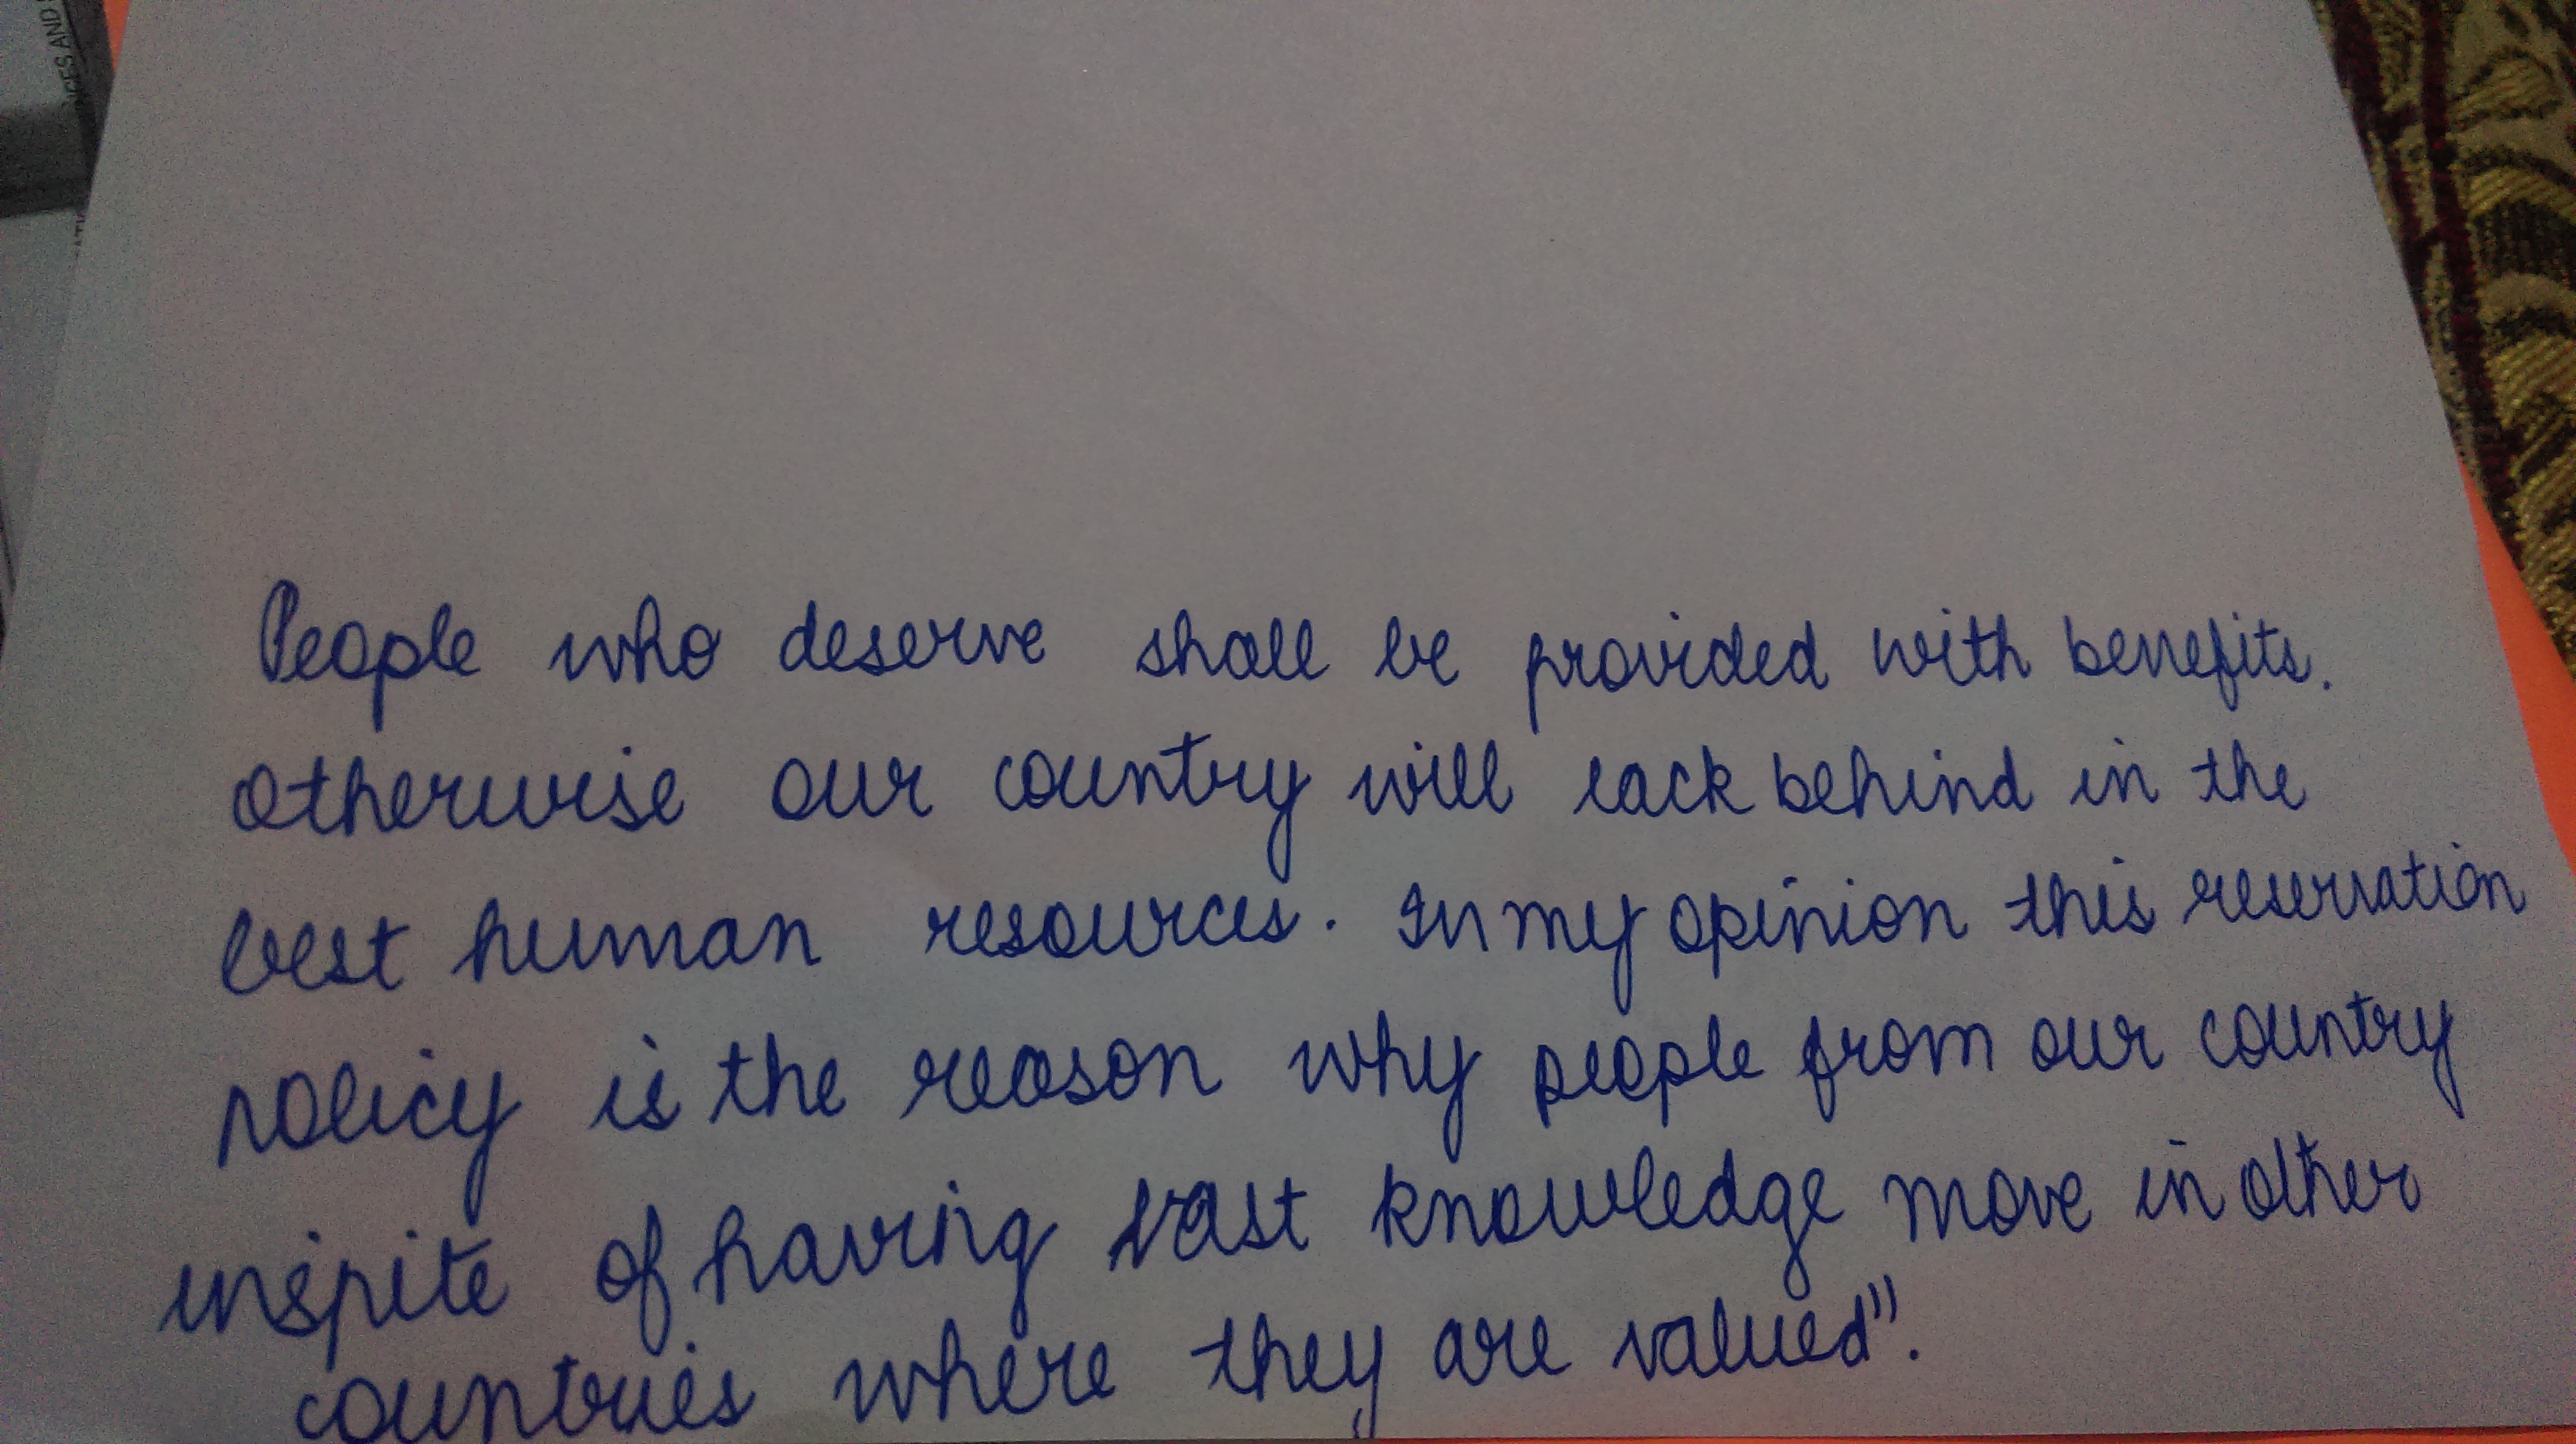 NCES AND
People who deserve shall be provided with benefits.
otherwise our country will lack behind in the
best human resources. In my opinion this reservation
policy is the reason why people from our country
inspite of having vast knowledge move in other
countries where they are valued".